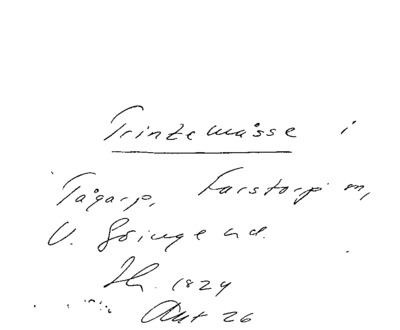 Trintemåsse i
Tågarp, Farstorp m,
V. Göinge hd.
Th. 1829
Akt 26